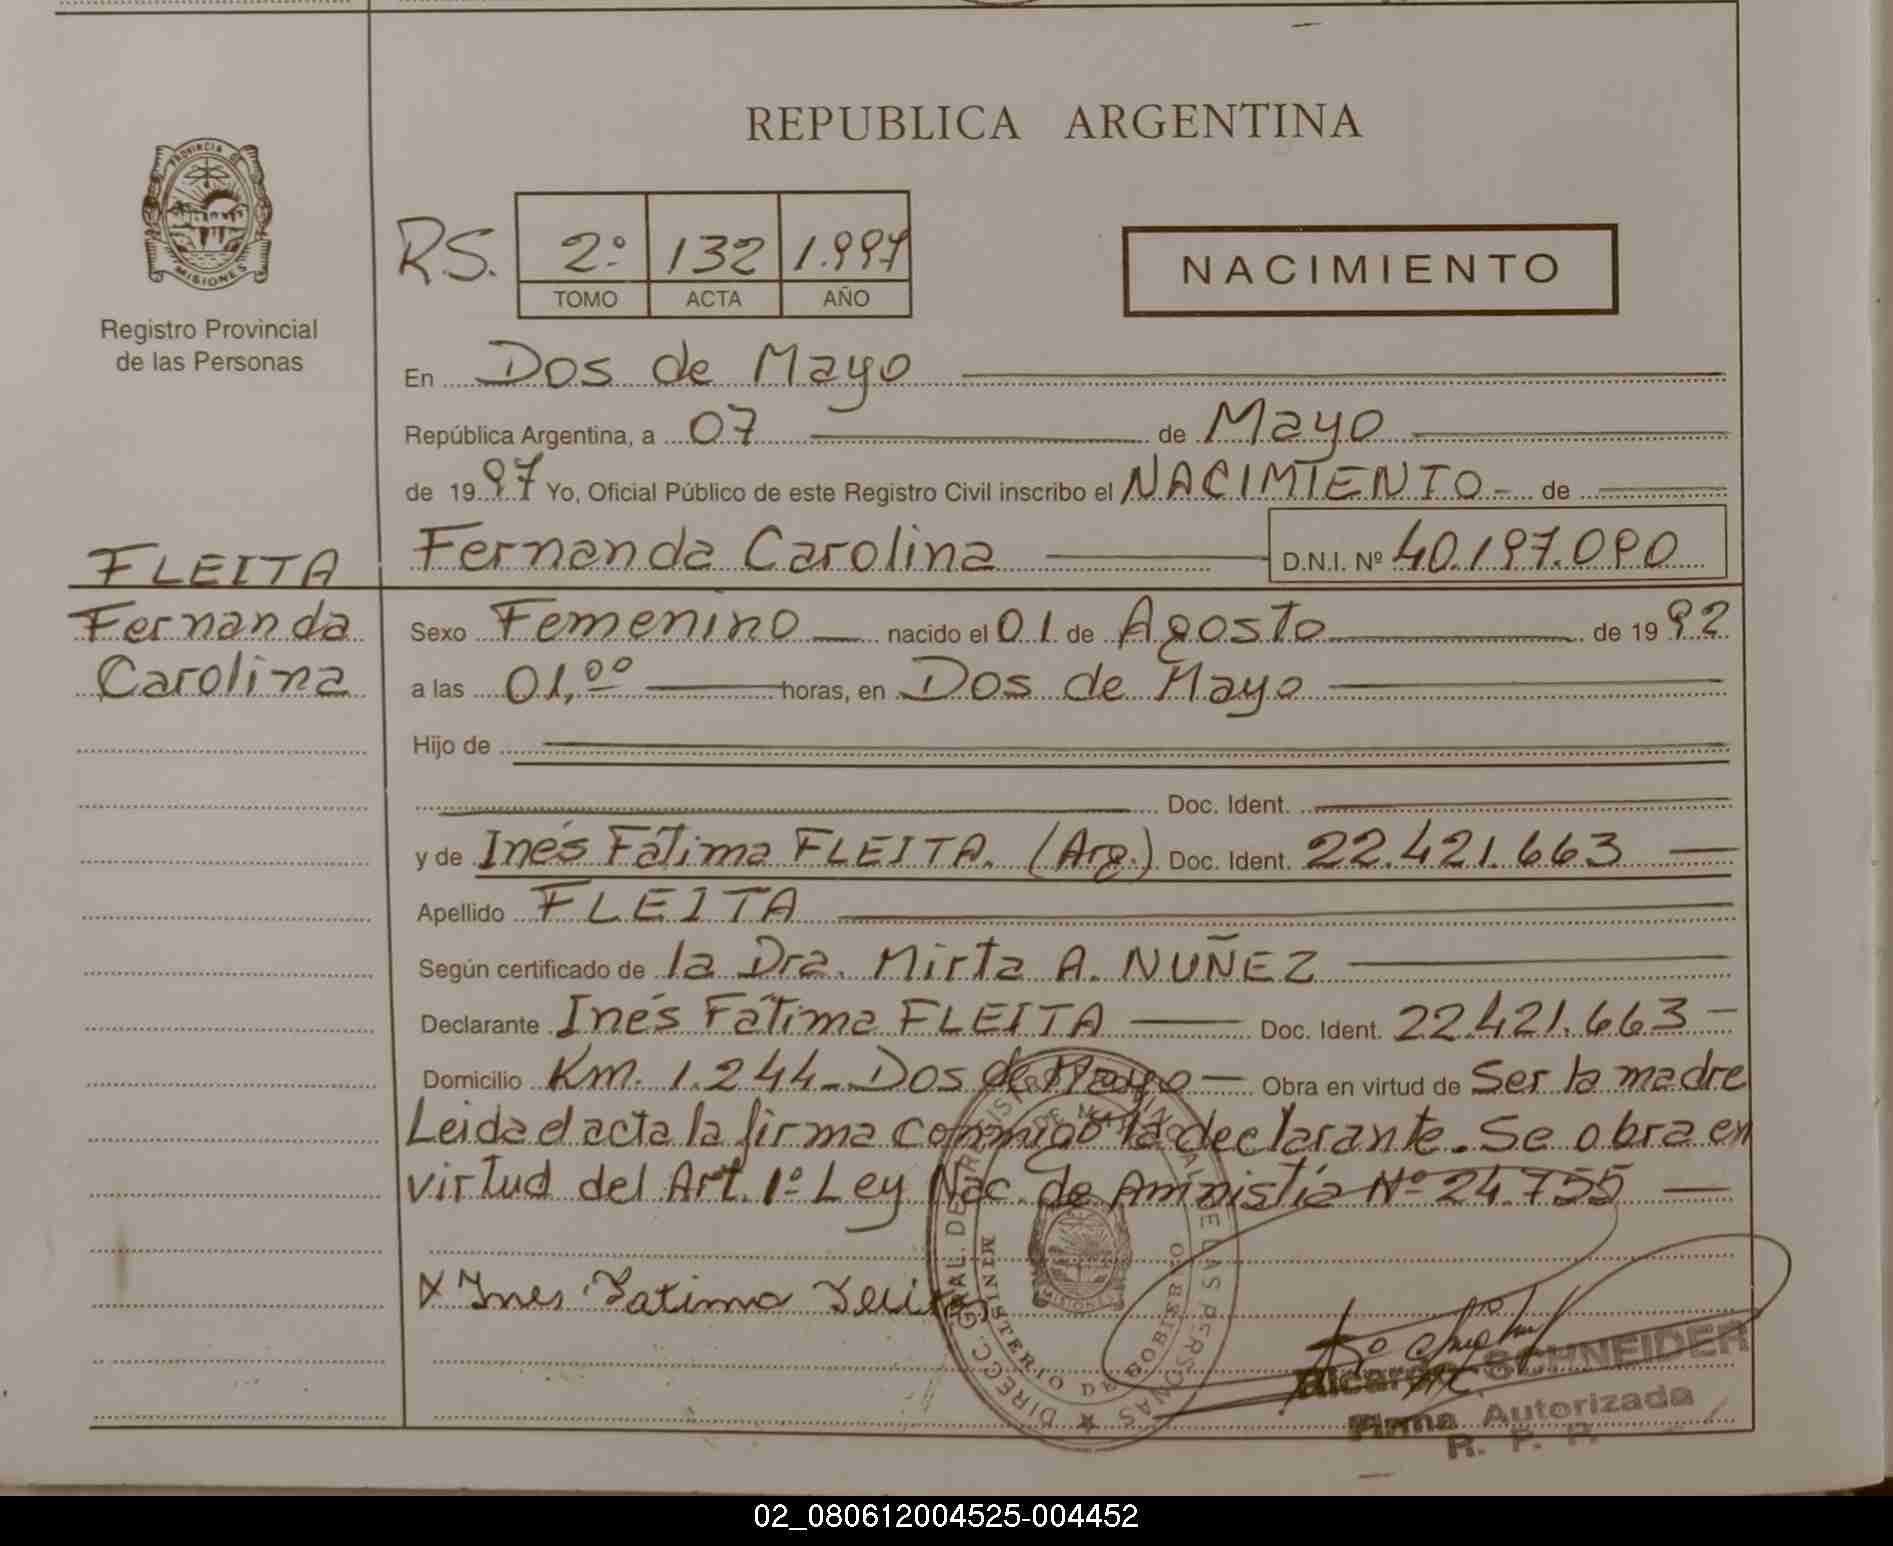 REPUBLICA ARGENTINA
PROVINCIA DE MISIONES
Registro Provincial
de las Personas
RS. 2º 132 1.997
TOMO ACTA AÑO
NACIMIENTO
En Dos de Mayo
República Argentina, a 07 de Mayo
de 1997 Yo, Oficial Público de este Registro Civil inscribo el NACIMIENTO - de
Fernanda Carolina D.N.I. Nº 40.197.090
FLEITA
Fernanda
Carolina
Sexo Femenino nacido el 01 de Agosto de 1992
a las 01,00 horas, en Dos de Mayo
Hijo de
Doc. Ident.
y de Inés Fátima FLEITA. (Arg.) Doc. Ident. 22.421.663
Apellido FLEITA
Según certificado de la Dra. Mirta A. NUÑEZ
Declarante Inés Fátima FLEITA Doc. Ident. 22.421.663
Domicilio Km. 1.244 - Dos de Mayo Obra en virtud de Ser la madre
Leida el acta la firma conmigo la declarante. Se obra en
virtud del Art. 1º Ley Nac. de Amnistía Nº 24.755
x Ines Fatima Fleita
DIRECC. GRAL. DE REGISTRO PROVINCIAL DE LAS PERSONAS
MINISTERIO DE GOBIERNO
MISIONES
Ricardo SCHNEIDER
Firma Autorizada
R. P. P.
02_080612004525-004452